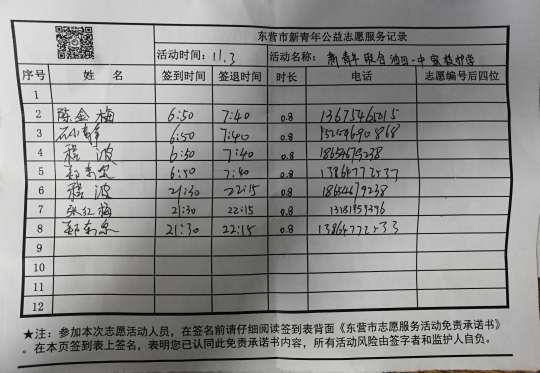 东营市新青年公益志愿服务记录
活动时间：11.3 活动名称：新青年联合油田一中家校护学
序号 姓 名 签到时间 签退时间 时长 电话 志愿编号后四位
1
2 陈金梅 6:50 7:40 0.8
3 6:50 7:40 0.8
4 程波 6:50 7:40 0.8
5 6:50 7:40 0.8
6 程波 21:30 22:15 0.8
7 张红梅 21:30 22:15 0.8
8 21:30 22:15 0.8
9
10
11
12
★注：参加本次志愿活动人员，在签名前请仔细阅读签到表背面《东营市志愿服务活动免责承诺书》
。在本页签到表上签名，表明您已认同此免责承诺书内容，所有活动风险由签字者和监护人自负。